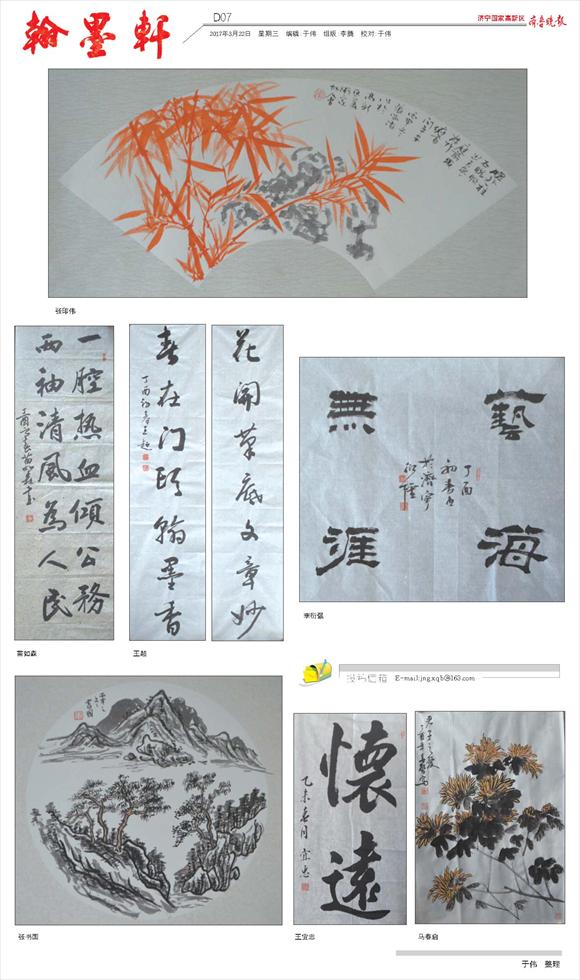 翰墨軒
D07
2017年3月22日 星期三 编辑:于伟 组版:李腾 校对:于伟
济宁国家高新区 齐鲁晚报
张印伟
一腔热血倾公务
两袖清风为人民
花开笔底文章妙
春在门头翰墨香
丁酉初春王超
藝海
無涯
苗如森
王超
李衍强
投稿信箱 E-mail:jngxqb@163.com
懷遠
乙未春月宜忠
张书国
王宜忠
马春启
于伟 整理